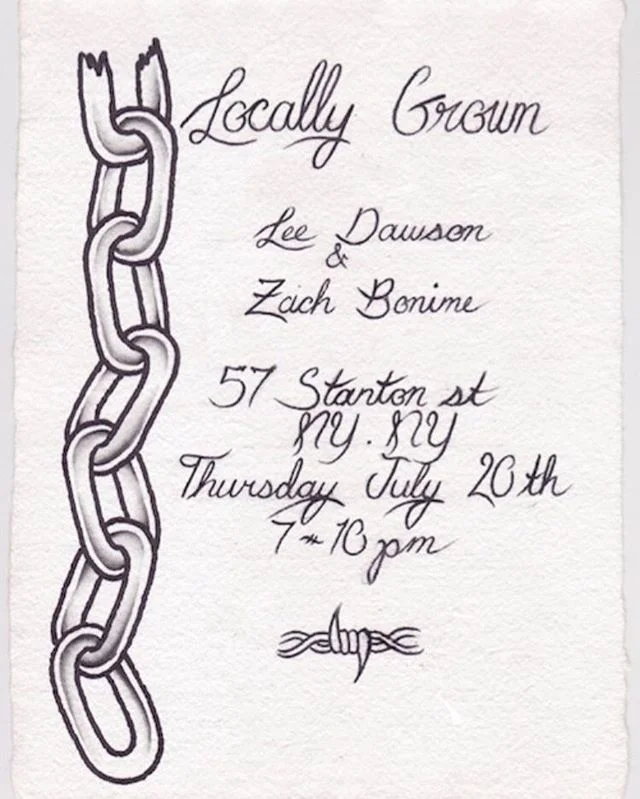 Locally Grown
Lee Dawson
&
Zach Bonime
57 Stanton st
NY. NY
Thursday July 20th
7-10 pm